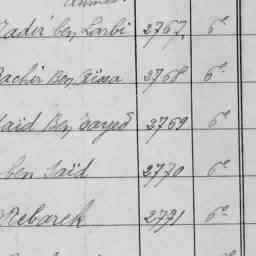 Kader ben Larbi 2767 6e
Bachir Ben Aïssa 2768 6e
Saïd Ben Sayed 2769 6e
ben Saïd 2770 6e
Mebarek 2771 6e